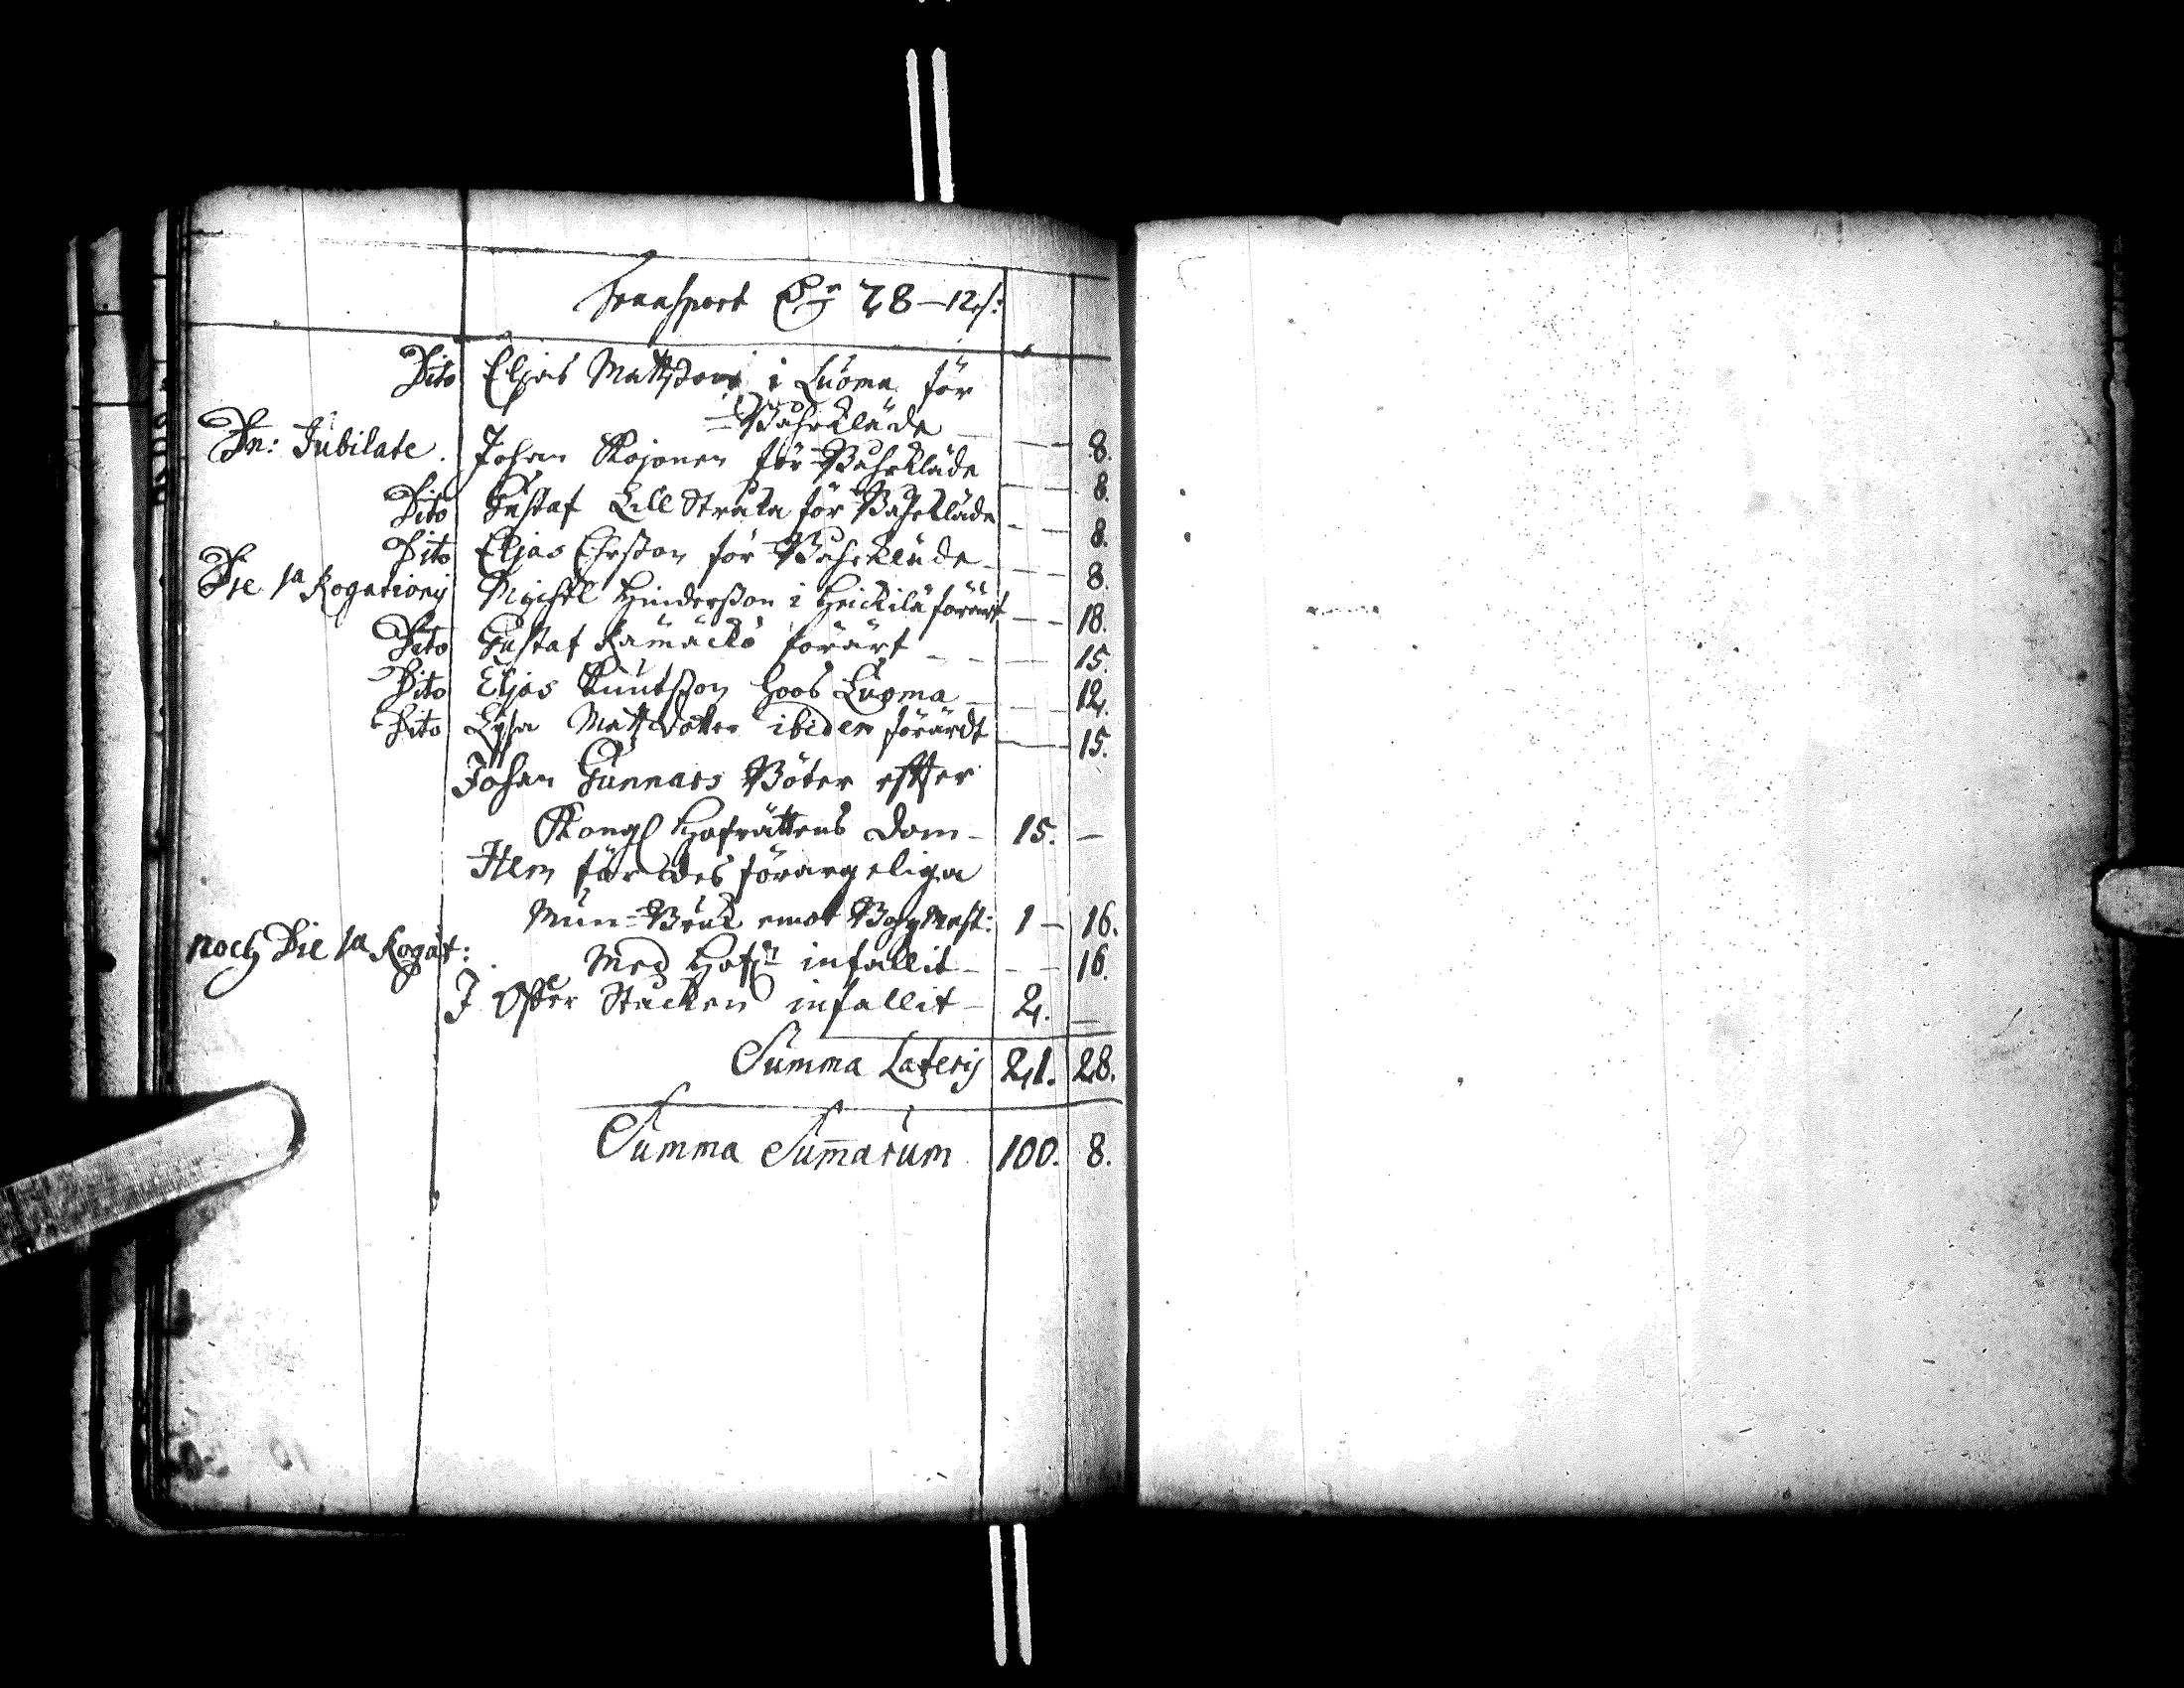 Transport Dr 78-12 s:
Dito Eljas Mattsson i Luoma för
Bahrkläde — 8.
Dn: Jubilate. Johan Kojonen för Bahrkläde — 8.
Dito Gustaf Lill Straka för Bahrkläde — 8.
Dito Eljas Ersson för Bahrkläde — 8.
Die 1a Rogationis Michel Hindersson i Heickilä förärt — 18.
Dito Gustaf Rämäckö förärt — 15.
Dito Eljas Knutsson hoos Luoma — 12.
Dito Lysa Mattzdotter ibidem förärdt — 15.
Johan Gunnars Böter effter
Kongl Hofrättens dom — 15. —
Item för des förargeliga
Mun-Bruk emot Bygmest: 1 — 16.
noch Die 1a Rogat: Med Hafn infallit — 16.
I Offer Stocken infallit — 2. —
Summa Lateris 21. 28.
Summa Summarum 100. 8.